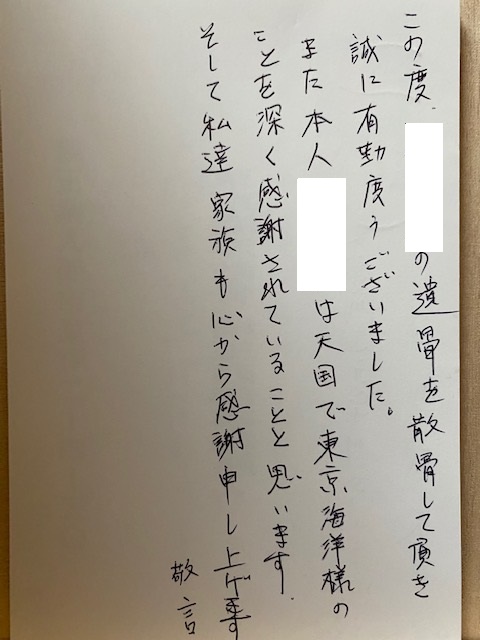 この度、の遺骨を散骨して頂き
誠に有勤度うございました。
また本人は天国で東京海洋様の
ことを深く感謝されていることと思います.
そして私達家族も心から感謝申し上げます
敬言